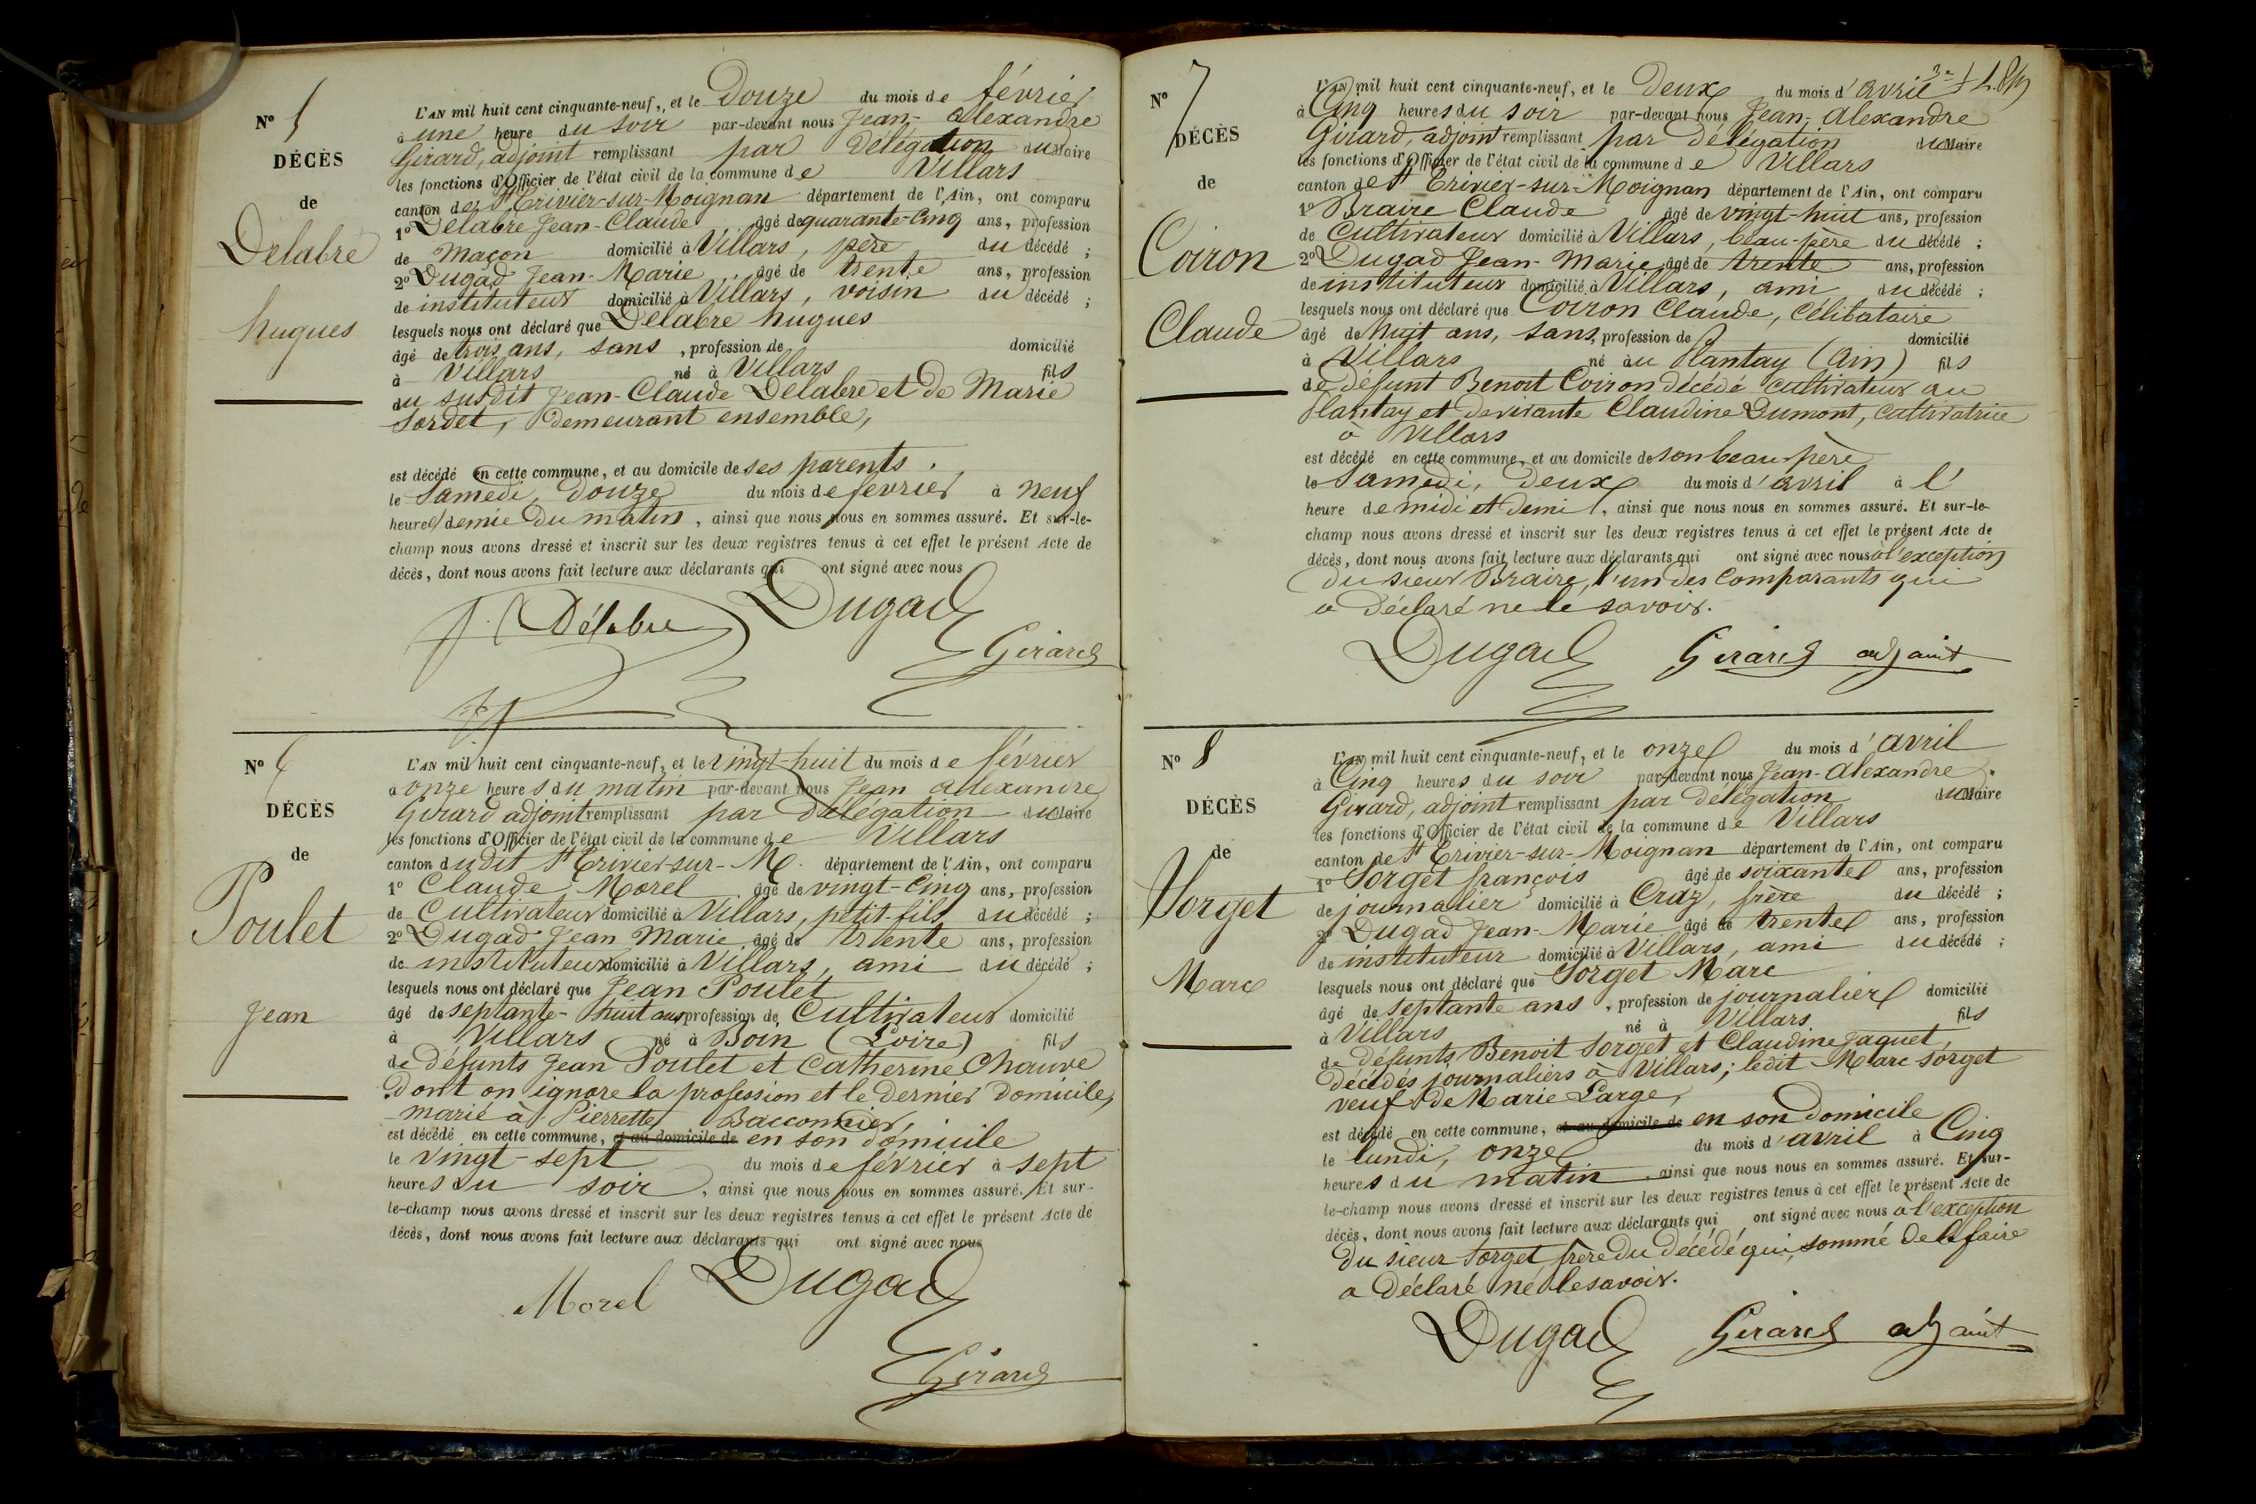 Nº 5
DÉCÈS
de
Delabre
hugues
L'AN mil huit cent cinquante-neuf, et le Douze du mois de février
à une heure du soir par-devant nous Jean-Alexandre
Girard, adjoint remplissant par Délégation du Maire
les fonctions d'Officier de l'état civil de la commune de Villars
canton de St Trivier-sur-Moignan département de l'Ain, ont comparu
1º Delabre Jean-Claude âgé de quarante-cinq ans, profession
de Maçon domicilié à Villars, père du décédé ;
2º Dugad Jean-Marie, âgé de trente ans, profession
de instituteur domicilié à Villars, voisin du décédé ;
lesquels nous ont déclaré que Delabre hugues
âgé de trois ans, sans, profession de domicilié
à Villars né à Villars fils
du susdit Jean-Claude Delabre et de Marie
Sordet, demeurant ensemble,
est décédé en cette commune, et au domicile de ses parents.
le Samedi, Douze du mois de février à neuf
heures demie du matin, ainsi que nous nous en sommes assuré. Et sur-le-
champ nous avons dressé et inscrit sur les deux registres tenus à cet effet le présent Acte de
décès, dont nous avons fait lecture aux déclarants qui ont signé avec nous
Délabre Dugad
Girard
Nº 6
DÉCÈS
de
Poulet
Jean
L'AN mil huit cent cinquante-neuf, et le vingt-huit du mois de février
à onze heures du matin par-devant nous Jean Alexandre
Girard adjoint remplissant par Délégation du Maire
les fonctions d'Officier de l'état civil de la commune de Villars
canton dudit St Trivier-sur-M. département de l'Ain, ont comparu
1º Claude Morel âgé de vingt-cinq ans, profession
de Cultivateur domicilié à Villars, petit-fils du décédé ;
2º Dugad Jean Marie, âgé de trente ans, profession
de instituteur domicilié à Villars, ami du décédé ;
lesquels nous ont déclaré que Jean Poulet
âgé de septante-huit ans profession de Cultivateur domicilié
à Villars né à Boin (Loire) fils
de défunts Jean Poulet et Catherine Chauve
dont on ignore la profession et le dernier domicile,
marié à Pierrette Bacconnier,
est décédé en cette commune, et au domicile de en son domicile
le vingt-sept du mois de février à sept
heures du soir, ainsi que nous nous en sommes assuré. Et sur-
le-champ nous avons dressé et inscrit sur les deux registres tenus à cet effet le présent Acte de
décès, dont nous avons fait lecture aux déclarants qui ont signé avec nous
Morel Dugad
Girard
Nº 7
DÉCÈS
de
Coiron
Claude
L'AN mil huit cent cinquante-neuf, et le Deux du mois d'avril
à Cinq heures du soir par-devant nous Jean-Alexandre
Girard, adjoint remplissant par Délégation du Maire
les fonctions d'Officier de l'état civil de la commune de Villars
canton de St Trivier-sur-Moignan département de l'Ain, ont comparu
1º Braire Claude âgé de vingt-huit ans, profession
de Cultivateur domicilié à Villars, beau-père du décédé ;
2º Dugad Jean-Marie, âgé de trente ans, profession
de instituteur domicilié à Villars, ami du décédé ;
lesquels nous ont déclaré que Coiron Claude, célibataire
âgé de huit ans, sans, profession de domicilié
à Villars né au Plantay (Ain) fils
de défunt Benoit Coiron décédé cultivateur au
Plantay et de vivante Claudine Dumont, cultivatrice
à Villars
est décédé en cette commune, et au domicile de son beau-père
le Samedi, Deux du mois d'avril à l'
heure de midi et demi, ainsi que nous nous en sommes assuré. Et sur-le-
champ nous avons dressé et inscrit sur les deux registres tenus à cet effet le présent Acte de
décès, dont nous avons fait lecture aux déclarants qui ont signé avec nous à l'exception
du sieur Braire, l'un des comparants qui
a déclaré ne le savoir.
Dugad Girard adjoint
Nº 8
DÉCÈS
de
Sorget
Marc
L'AN mil huit cent cinquante-neuf, et le onze du mois d'avril
à Cinq heures du soir par-devant nous Jean-Alexandre
Girard, adjoint remplissant par Délégation du Maire
les fonctions d'Officier de l'état civil de la commune de Villars
canton de St Trivier-sur-Moignan département de l'Ain, ont comparu
1º Sorget françois âgé de soixante ans, profession
de journalier domicilié à Craz, frère du décédé ;
2º Dugad Jean-Marie âgé de trente ans, profession
de instituteur domicilié à Villars, ami du décédé ;
lesquels nous ont déclaré que Sorget Marc
âgé de septante ans, profession de journalier domicilié
à Villars né à Villars fils
de défunts Benoit Sorget et Claudine Jaquet,
décédés journaliers à Villars; ledit Marc Sorget
veuf de Marie Large,
est décédé en cette commune, et au domicile de en son domicile
le lundi, onze du mois d'avril à Cinq
heures du matin, ainsi que nous nous en sommes assuré. Et sur-
le-champ nous avons dressé et inscrit sur les deux registres tenus à cet effet le présent Acte de
décès, dont nous avons fait lecture aux déclarants qui ont signé avec nous à l'exception
du sieur Sorget frère du décédé qui, sommé de le faire
a déclaré ne le savoir.
Dugad Girard adjoint